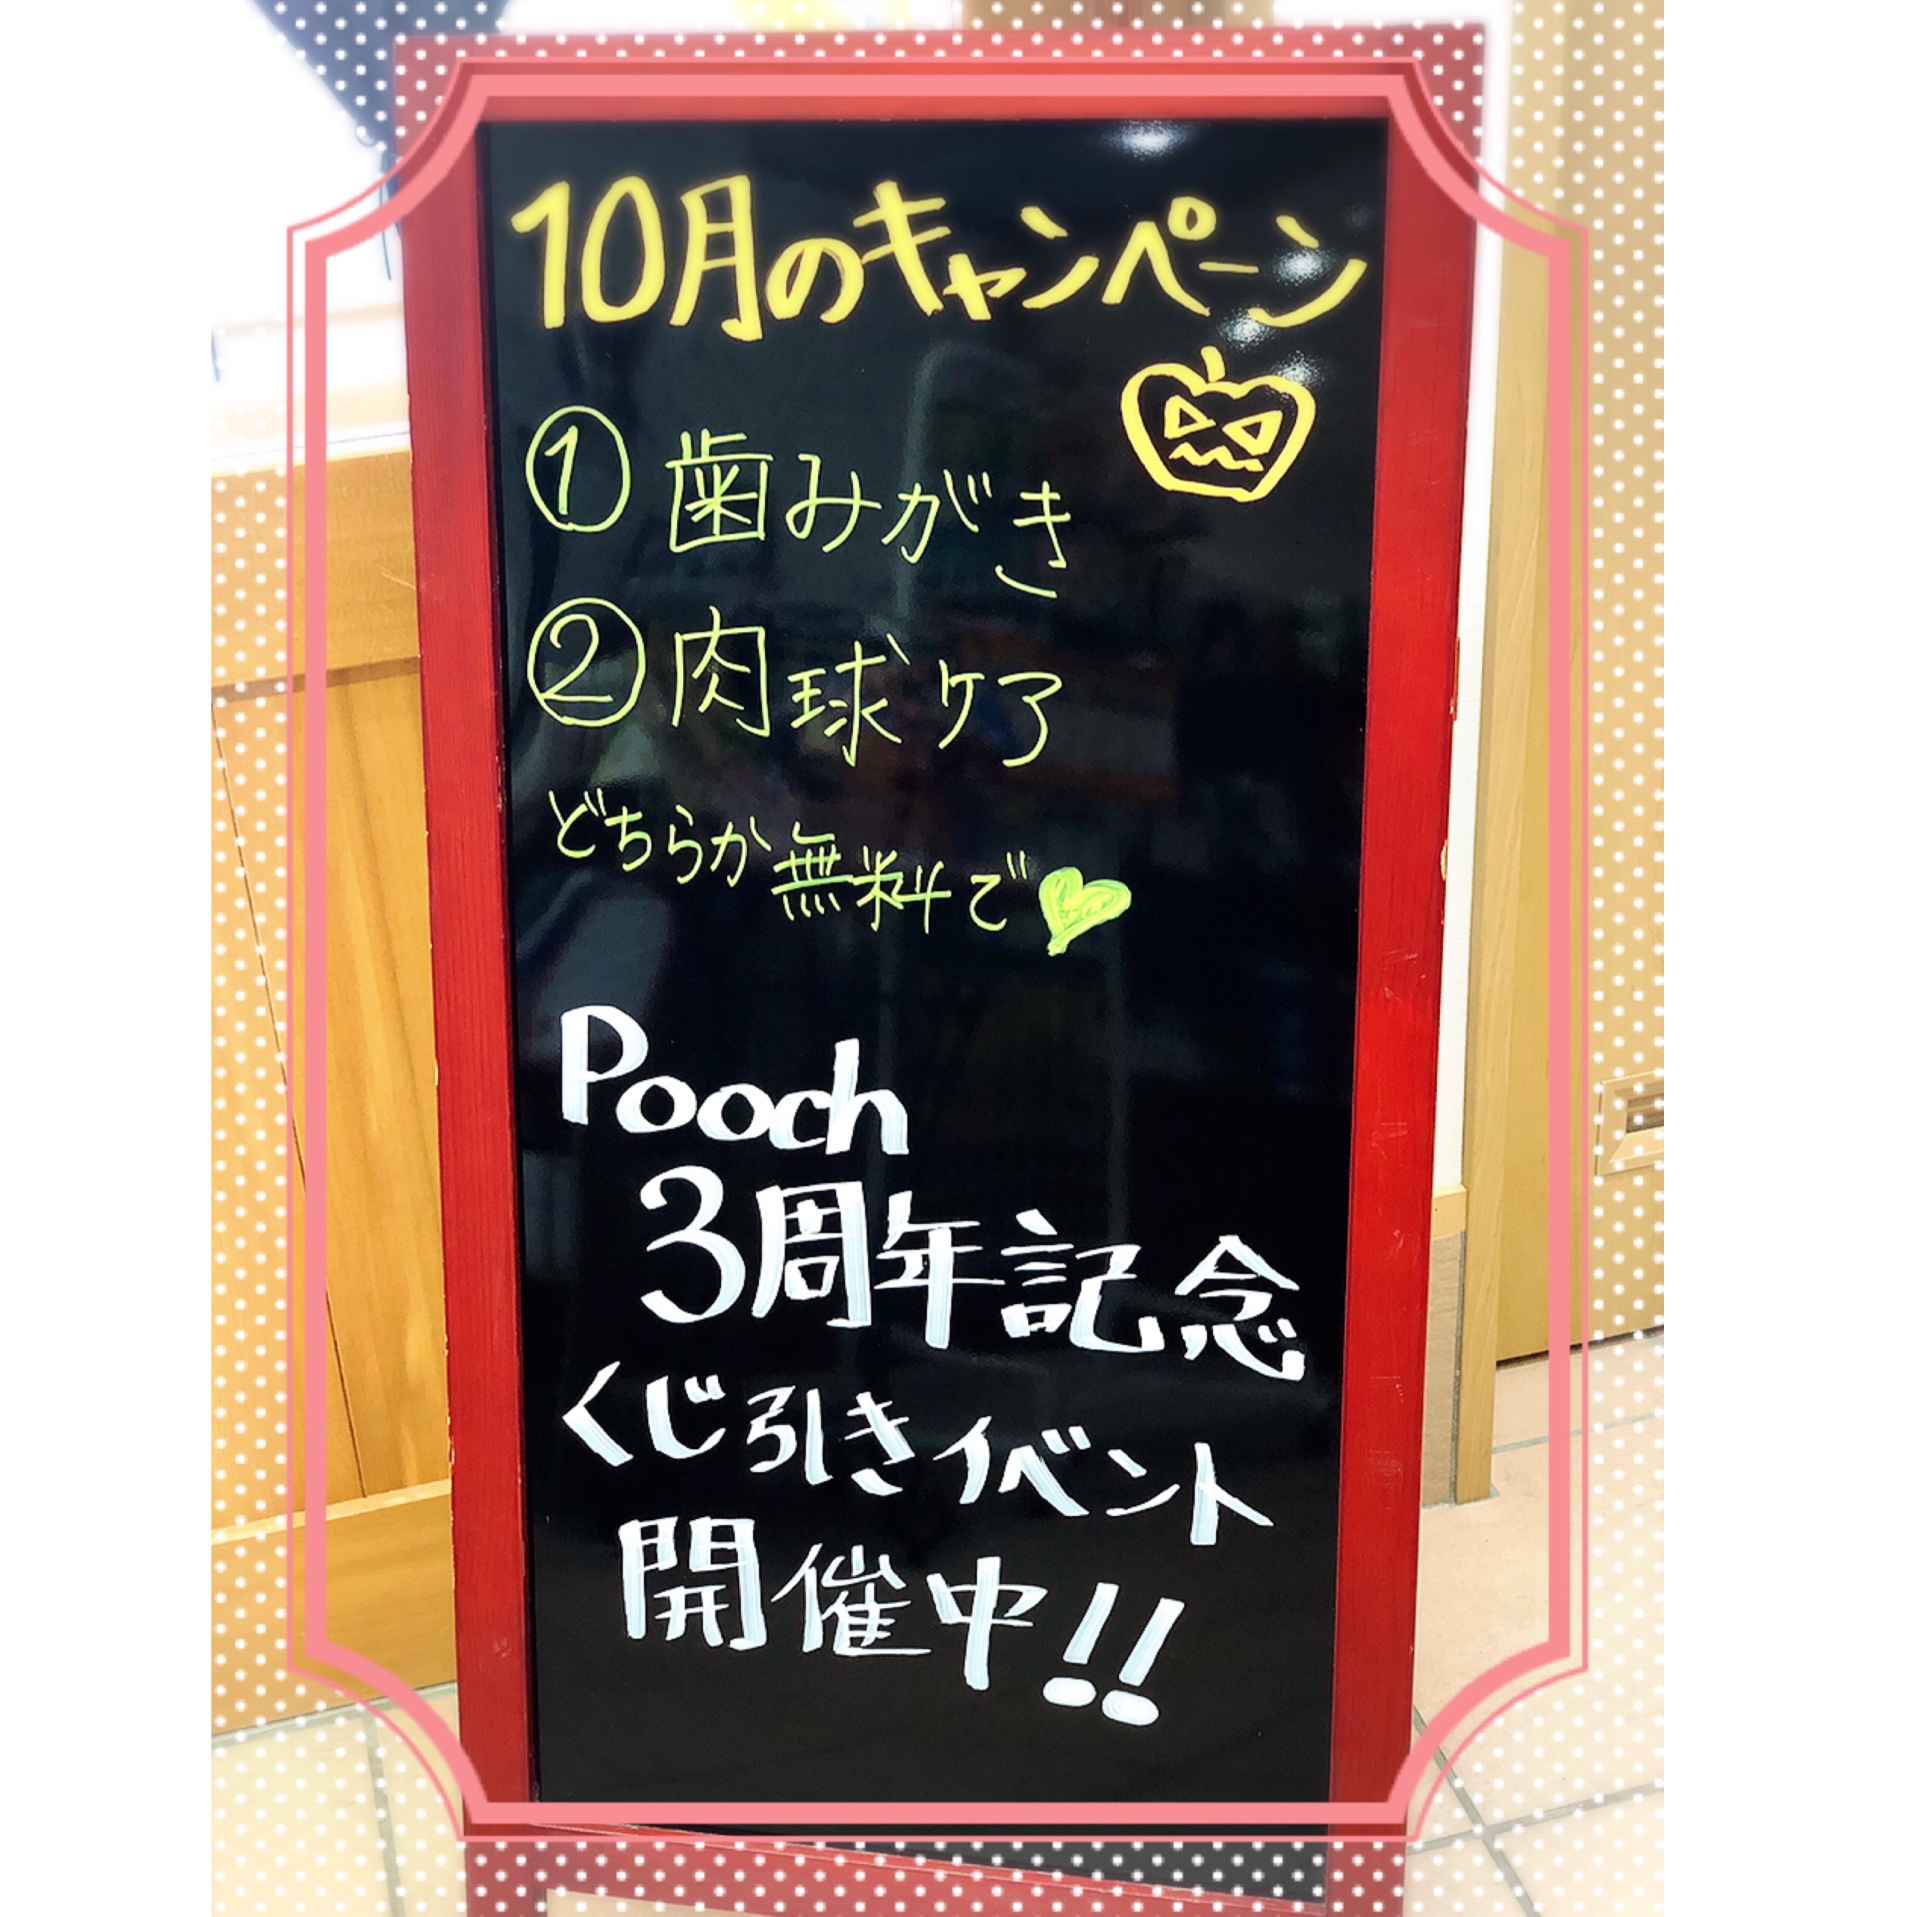 10月のキャンペーン
① 歯みがき
② 肉球ケア
どちらか無料で
Pooch
3周年記念
くじ引きイベント
開催中!!